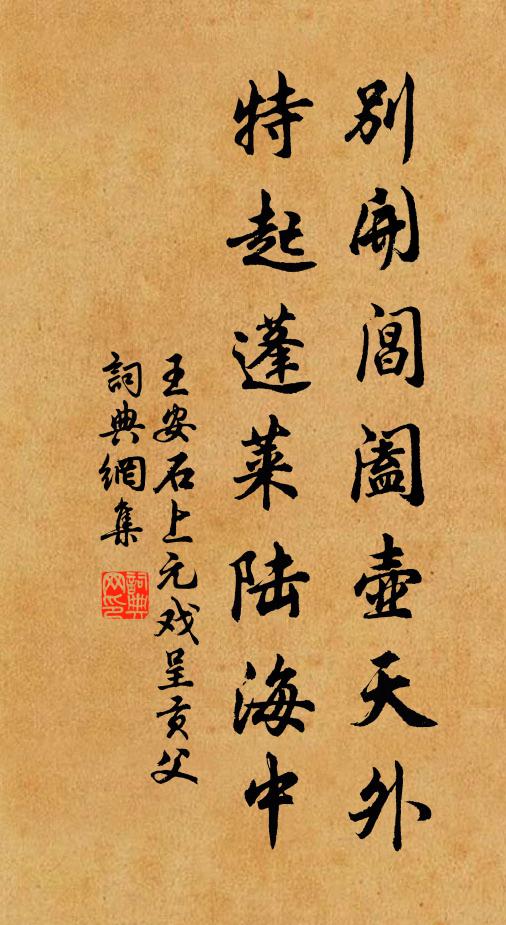 別開閶闔壺天外
特起蓬萊陸海中
王安石上元戏呈贡父
詞典網集
詞典网印